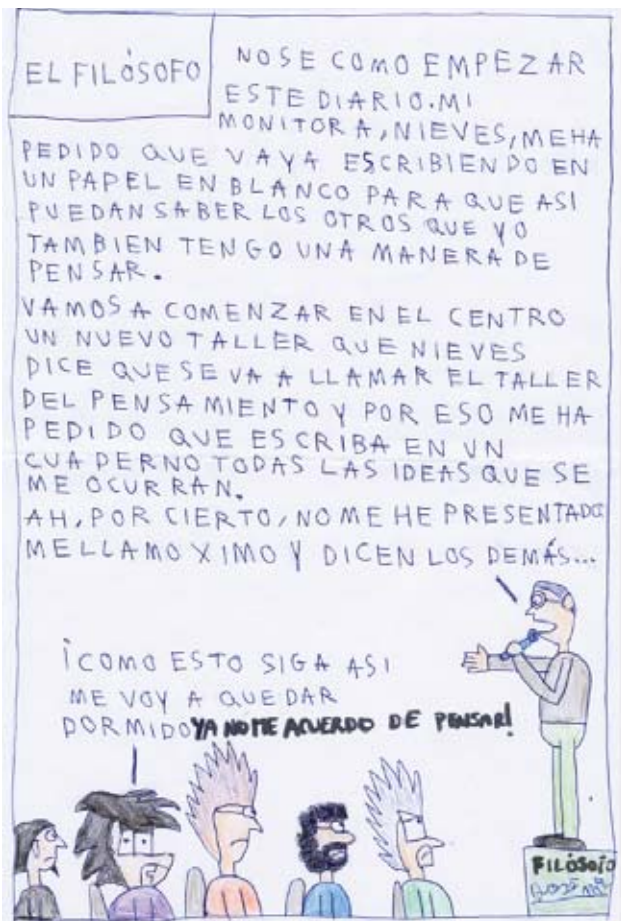 EL FILÓSOFO
NOSE COMO EMPEZAR
ESTE DIARIO. MI
MONITORA, NIEVES, MEHA
PEDIDO QUE VAYA ESCRIBIENDO EN
UN PAPEL EN BLANCO PARA QUE ASI
PUEDAN SABER LOS OTROS QUE YO
TAMBIEN TENGO UNA MANERA DE
PENSAR.
VAMOS A COMENZAR EN EL CENTRO
UN NUEVO TALLER QUE NIEVES
DICE QUE SE VA A LLAMAR EL TALLER
DEL PENSAMIENTO Y POR ESO ME HA
PEDIDO QUE ESCRIBA EN UN
CUADERNO TODAS LAS IDEAS QUE SE
ME OCURRAN.
AH, POR CIERTO, NO ME HE PRESENTADO
ME LLAMO XIMO Y DICEN LOS DEMÁS...
¡COMO ESTO SIGA ASI
ME VOY A QUEDAR
DORMIDO YA NO ME ACUERDO DE PENSAR!
FILÓSOFO